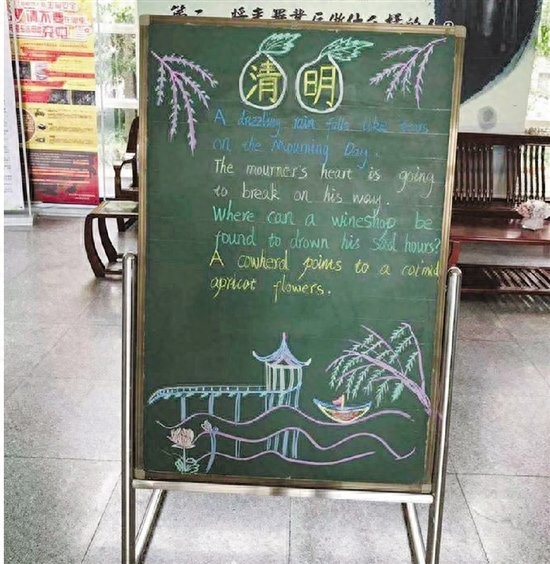 第二 将来毕业后做什么样的
请不要
清明
A drizzling rain falls like tears
on the Mourning Day.
The mourner's heart is going
to break on his way.
Where can a wineshop be
found to drown his sad hours?
A cowherd points to a cot'mid
apricot flowers.